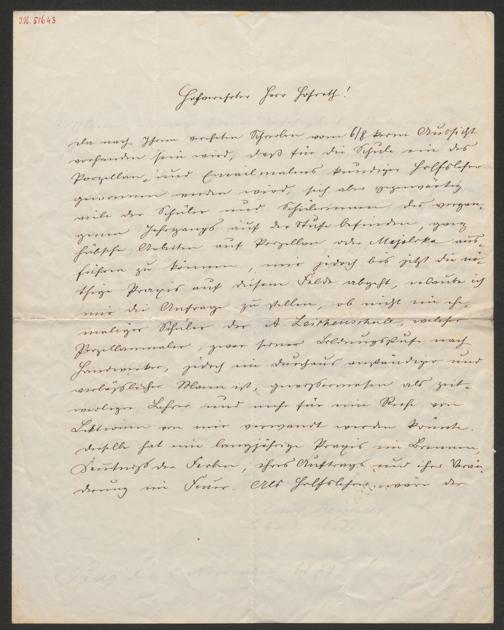 I.N. 51643
Hochverehrter Herr Hofrath!
Da nach Ihrem verehrten Schreiben vom 6/8 Aussicht
vorhanden sein wird, daß für die Schule ein des
Porzellan- und Emailmalens kundiger Hilfslehrer
gewonnen werden wird, sich aber gegenwärtig
viele der Schüler und Schülerinnen des vergan-
genen Jahrgangs auf der Stufe befinden, ganz
hübsche Arbeiten auf Porzellan oder Majolika aus-
führen zu können, mir jedoch bis jetzt die nö-
thige Praxis auf diesem Felde abgeht, erlaube ich
mir die Anfrage zu stellen, ob nicht ein ehe-
maliger Schüler der Zeichenschule, welcher
Porzellanmaler, zwar seiner Bildungsstufe nach
Handwerker, jedoch ein durchaus anständiger und
verlässlicher Mann ist, gewissermaßen als zeit-
weiliger Lehrer und mehr für eine Reihe von
Lektionen von mir verwandt werden könnte.
Derselbe hat eine langjährige Praxis im Brennen,
Kenntniß der Farben, ihres Auftrags und ihrer Verän-
derung im Feuer. Als Hilfslehrer wäre der